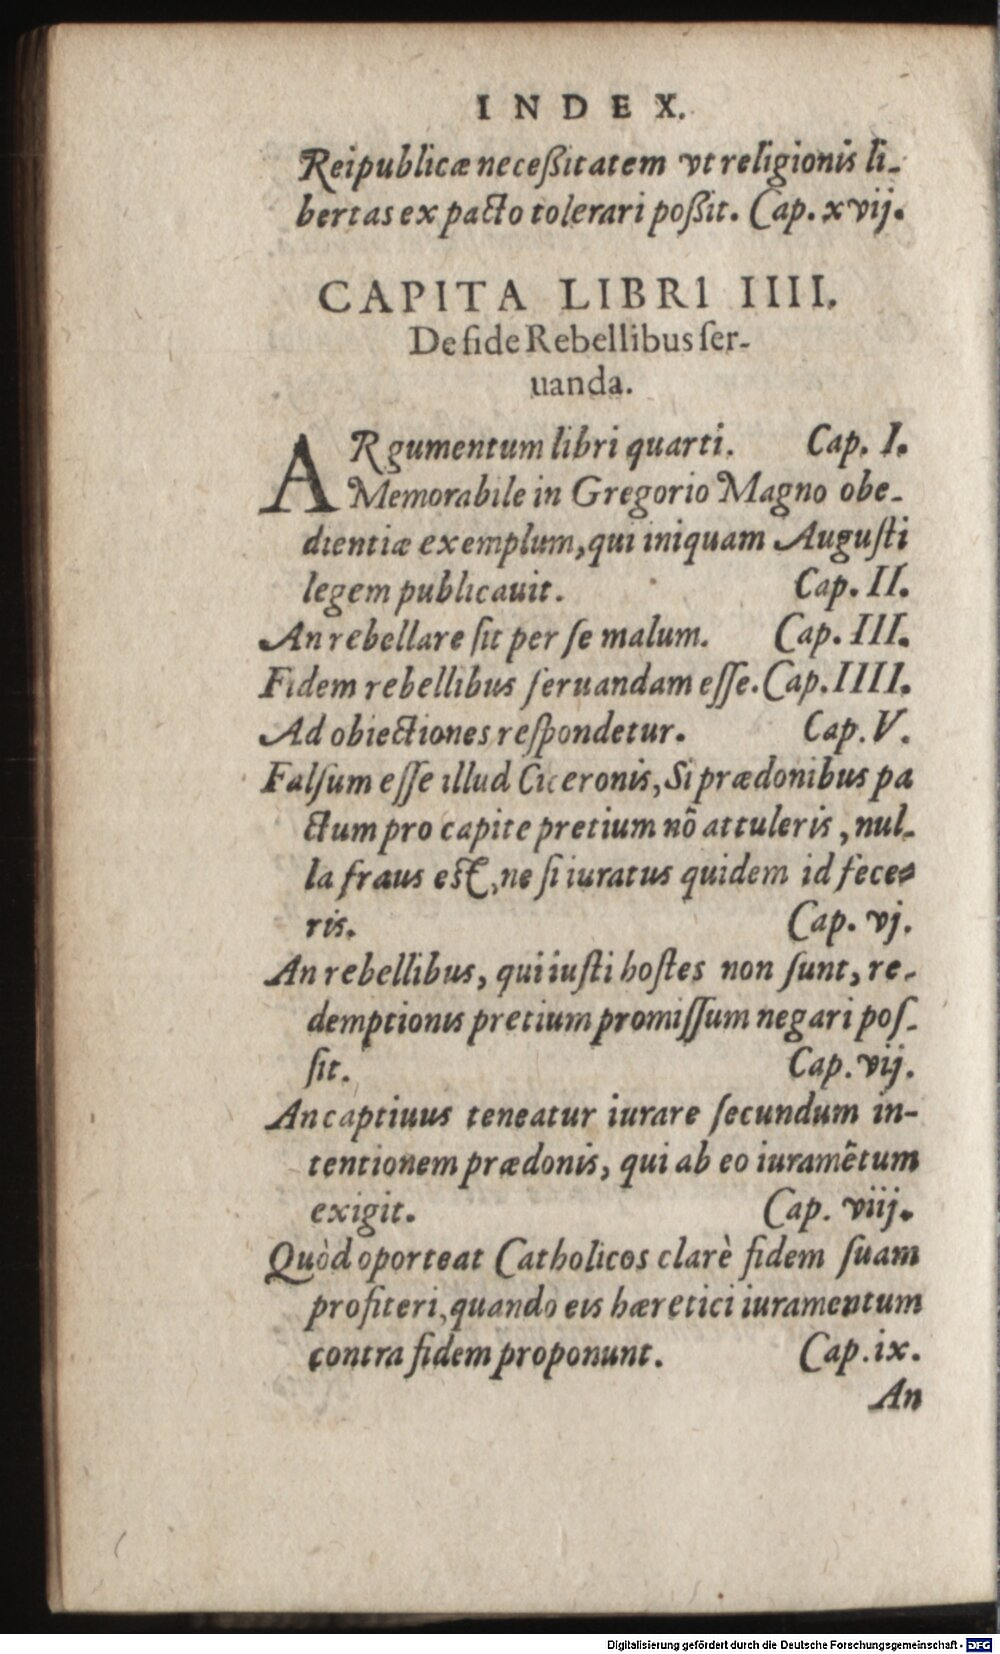 INDEX.
Reipublicæ neceßitatem vt religionis li-
bertas ex pacto tolerari poßit. Cap. xvij.
CAPITA LIBRI IIII.
De fide Rebellibus ſer-
uanda.
ARgumentum libri quarti. Cap. I.
Memorabile in Gregorio Magno obe-
dientiæ exemplum, qui iniquam Auguſti
legem publicauit. Cap. II.
An rebellare ſit per ſe malum. Cap. III.
Fidem rebellibus ſeruandam eſſe. Cap. IIII.
Ad obiectiones reſpondetur. Cap. V.
Falſum eſſe illud Ciceronis, Si prædonibus pa
ctum pro capite pretium nõ attuleris, nul-
la fraus est, ne ſi iuratus quidem id fece-
ris. Cap. vj.
An rebellibus, qui iuſti hoſtes non ſunt, re-
demptionis pretium promiſſum negari poſ-
ſit. Cap. vij.
An captiuus teneatur iurare ſecundum in-
tentionem prædonis, qui ab eo iuramẽtum
exigit. Cap. viij.
Quòd oporteat Catholicos clarè fidem ſuam
profiteri, quando eis hæretici iuramentum
contra fidem proponunt. Cap. ix.
An
Digitalisierung gefördert durch die Deutsche Forschungsgemeinschaft - DFG